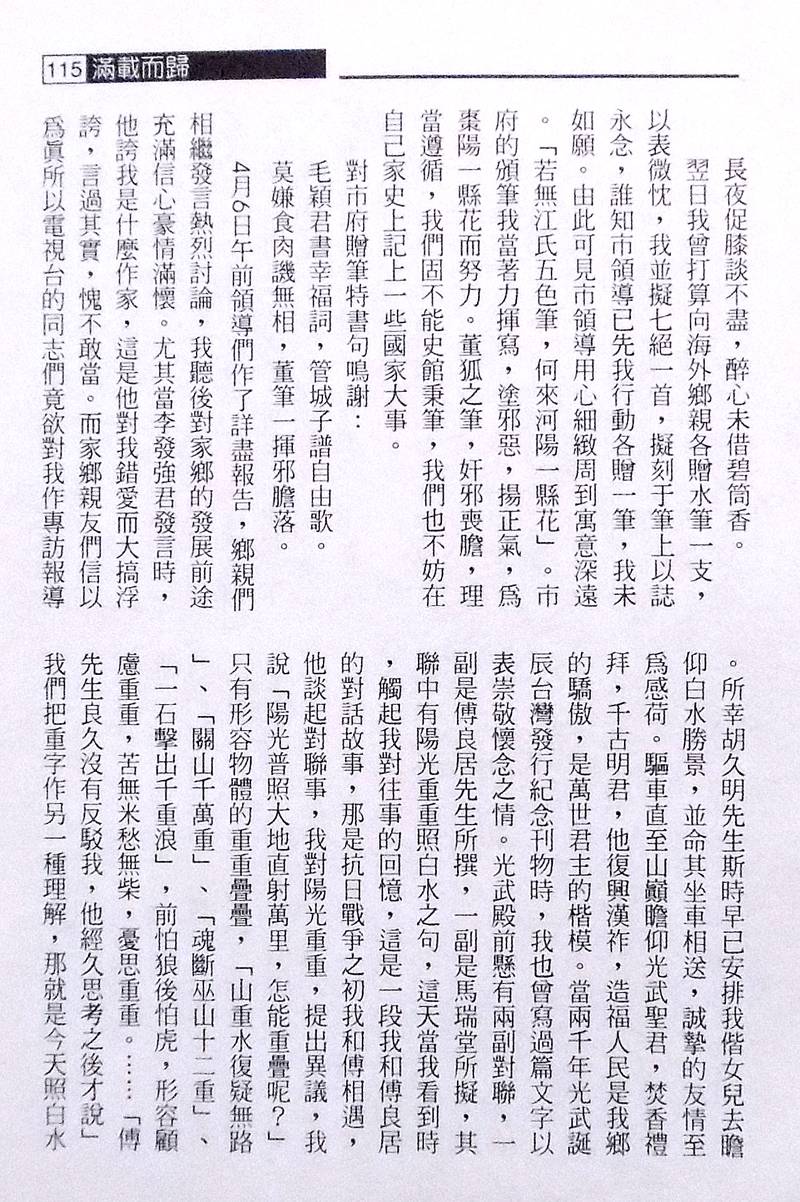 115 滿載而歸
長夜促膝談不盡，醉心未借碧筒香。
翌日我曾打算向海外鄉親各贈水筆一支，
以表微忱，我並擬七絕一首，擬刻于筆上以誌
永念，誰知市領導已先我行動各贈一筆，我未
如願。由此可見市領導用心細緻周到寓意深遠
。「若無江氏五色筆，何來河陽一縣花」。市
府的頒筆我當著力揮寫，塗邪惡，揚正氣，爲
棗陽一縣花而努力。董狐之筆，奸邪喪膽，理
當遵循，我們固不能史館秉筆，我們也不妨在
自己家史上記上一些國家大事。
對市府贈筆特書句鳴謝：
毛穎君書幸福詞，管城子譜自由歌。
莫嫌食肉譏無相，董筆一揮邪膽落。
4月6日午前領導們作了詳盡報告，鄉親們
相繼發言熱烈討論，我聽後對家鄉的發展前途
充滿信心豪情滿懷。尤其當李發強君發言時，
他誇我是什麼作家，這是他對我錯愛而大搞浮
誇，言過其實，愧不敢當。而家鄉親友們信以
爲眞所以電視台的同志們竟欲對我作專訪報導
。所幸胡久明先生斯時早已安排我偕女兒去瞻
仰白水勝景，並命其坐車相送，誠摯的友情至
爲感荷。驅車直至山巔瞻仰光武聖君，焚香禮
拜，千古明君，他復興漢祚，造福人民是我鄉
的驕傲，是萬世君主的楷模。當兩千年光武誕
辰台灣發行紀念刊物時，我也曾寫過篇文字以
表崇敬懷念之情。光武殿前懸有兩副對聯，一
副是傅良居先生所撰，一副是馬瑞堂所擬，其
聯中有陽光重重照白水之句，這天當我看到時
，觸起我對往事的回憶，這是一段我和傅良居
的對話故事，那是抗日戰爭之初我和傅相遇，
他談起對聯事，我對陽光重重，提出異議，我
說「陽光普照大地直射萬里，怎能重疊呢？」
只有形容物體的重重疊疊，「山重水復疑無路
」、「關山千萬重」、「魂斷巫山十二重」、
「一石擊出千重浪」，前怕狼後怕虎，形容顧
慮重重，苦無米愁無柴，憂思重重。……「傅
先生良久沒有反駁我，他經久思考之後才說」
我們把重字作另一種理解，那就是今天照白水